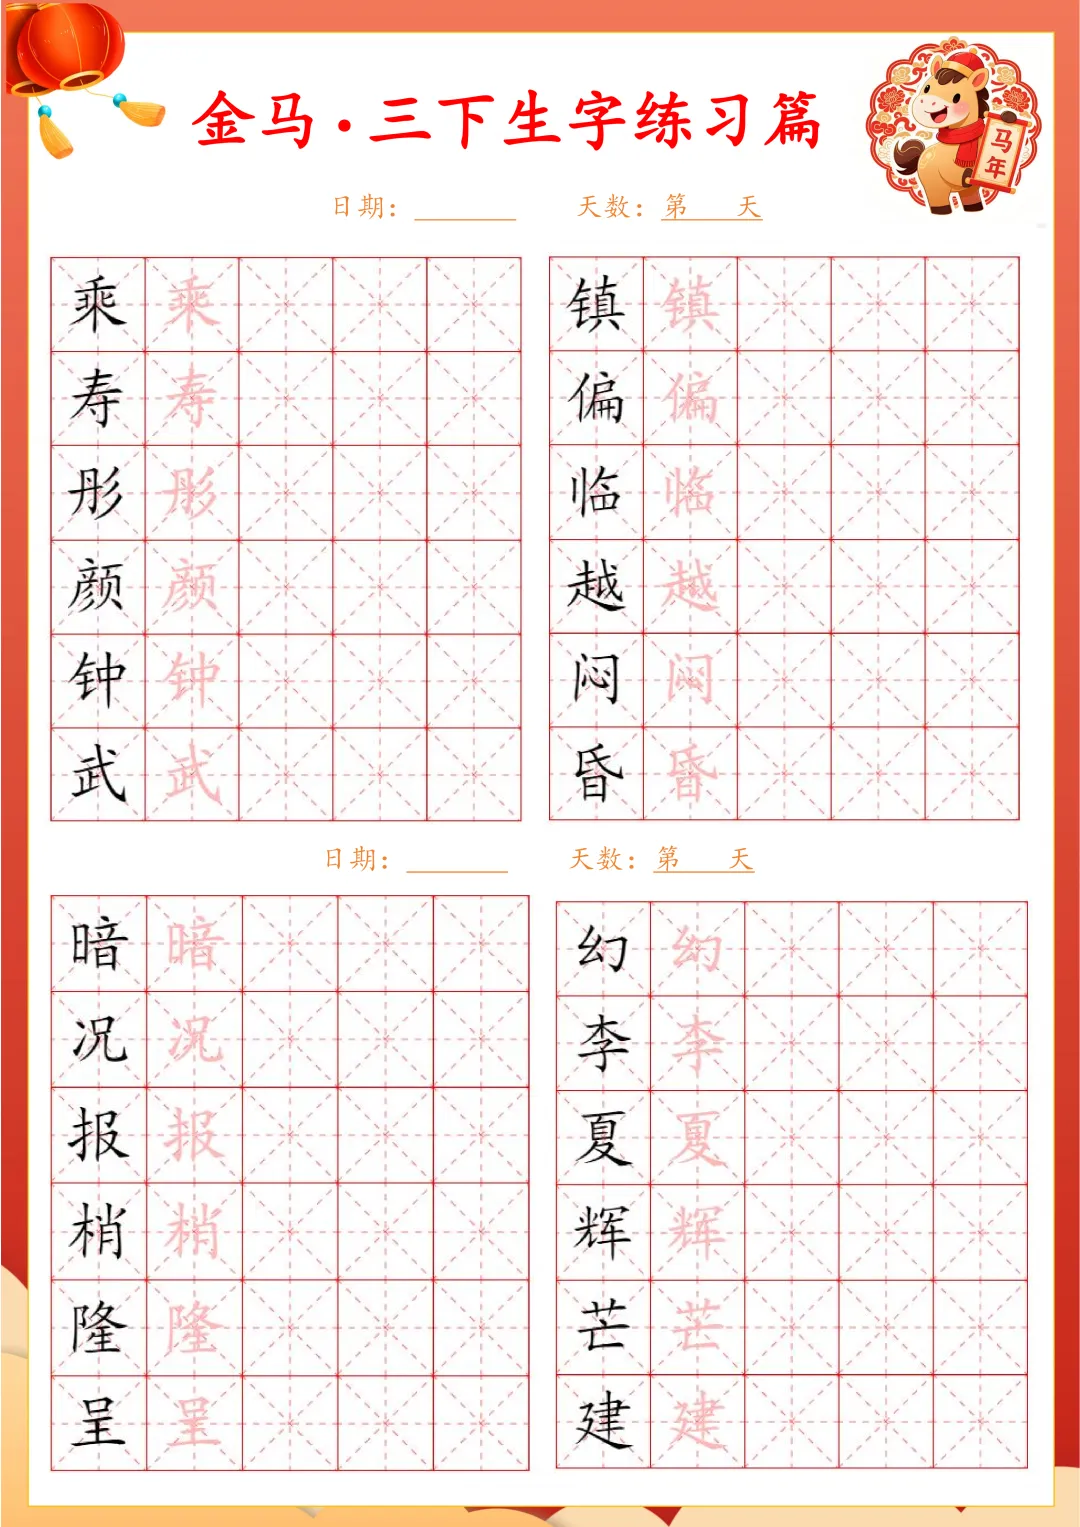 金马·三下生字练习篇
马年
日期：_______ 天数：第 天
乘 乘
寿 寿
彤 彤
颜 颜
钟 钟
武 武
镇 镇
偏 偏
临 临
越 越
闷 闷
昏 昏
日期：_______ 天数：第 天
暗 暗
况 况
报 报
梢 梢
隆 隆
呈 呈
幻 幻
李 李
夏 夏
辉 辉
芒 芒
建 建